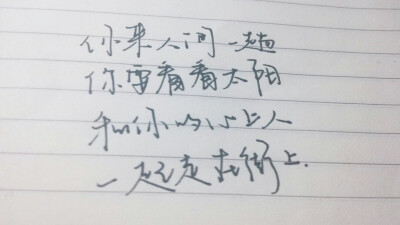 你来人间一趟
你要看看太阳
和你的心上人
一起走在街上.